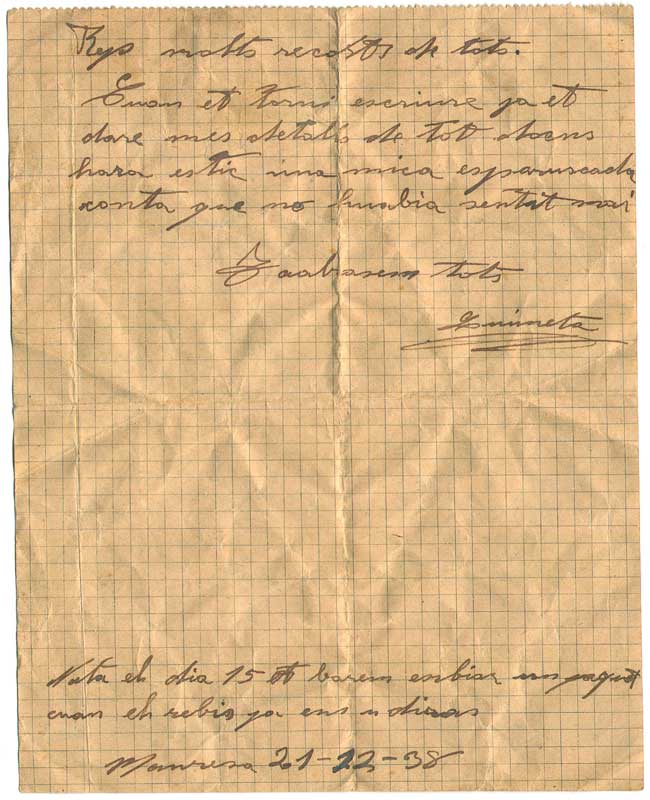 Reps molts records de tots.
Cuan et torni escriure ja et
dare mes detalls de tot doncs
hara estic una mica esparuscada
conta que no huabia sentit mai
T aabrasem tots
Quimeta
Nota el dia 15 et barem enbiar un paquet
cuan el rebis ja ens u diras
Manresa 21-12-38